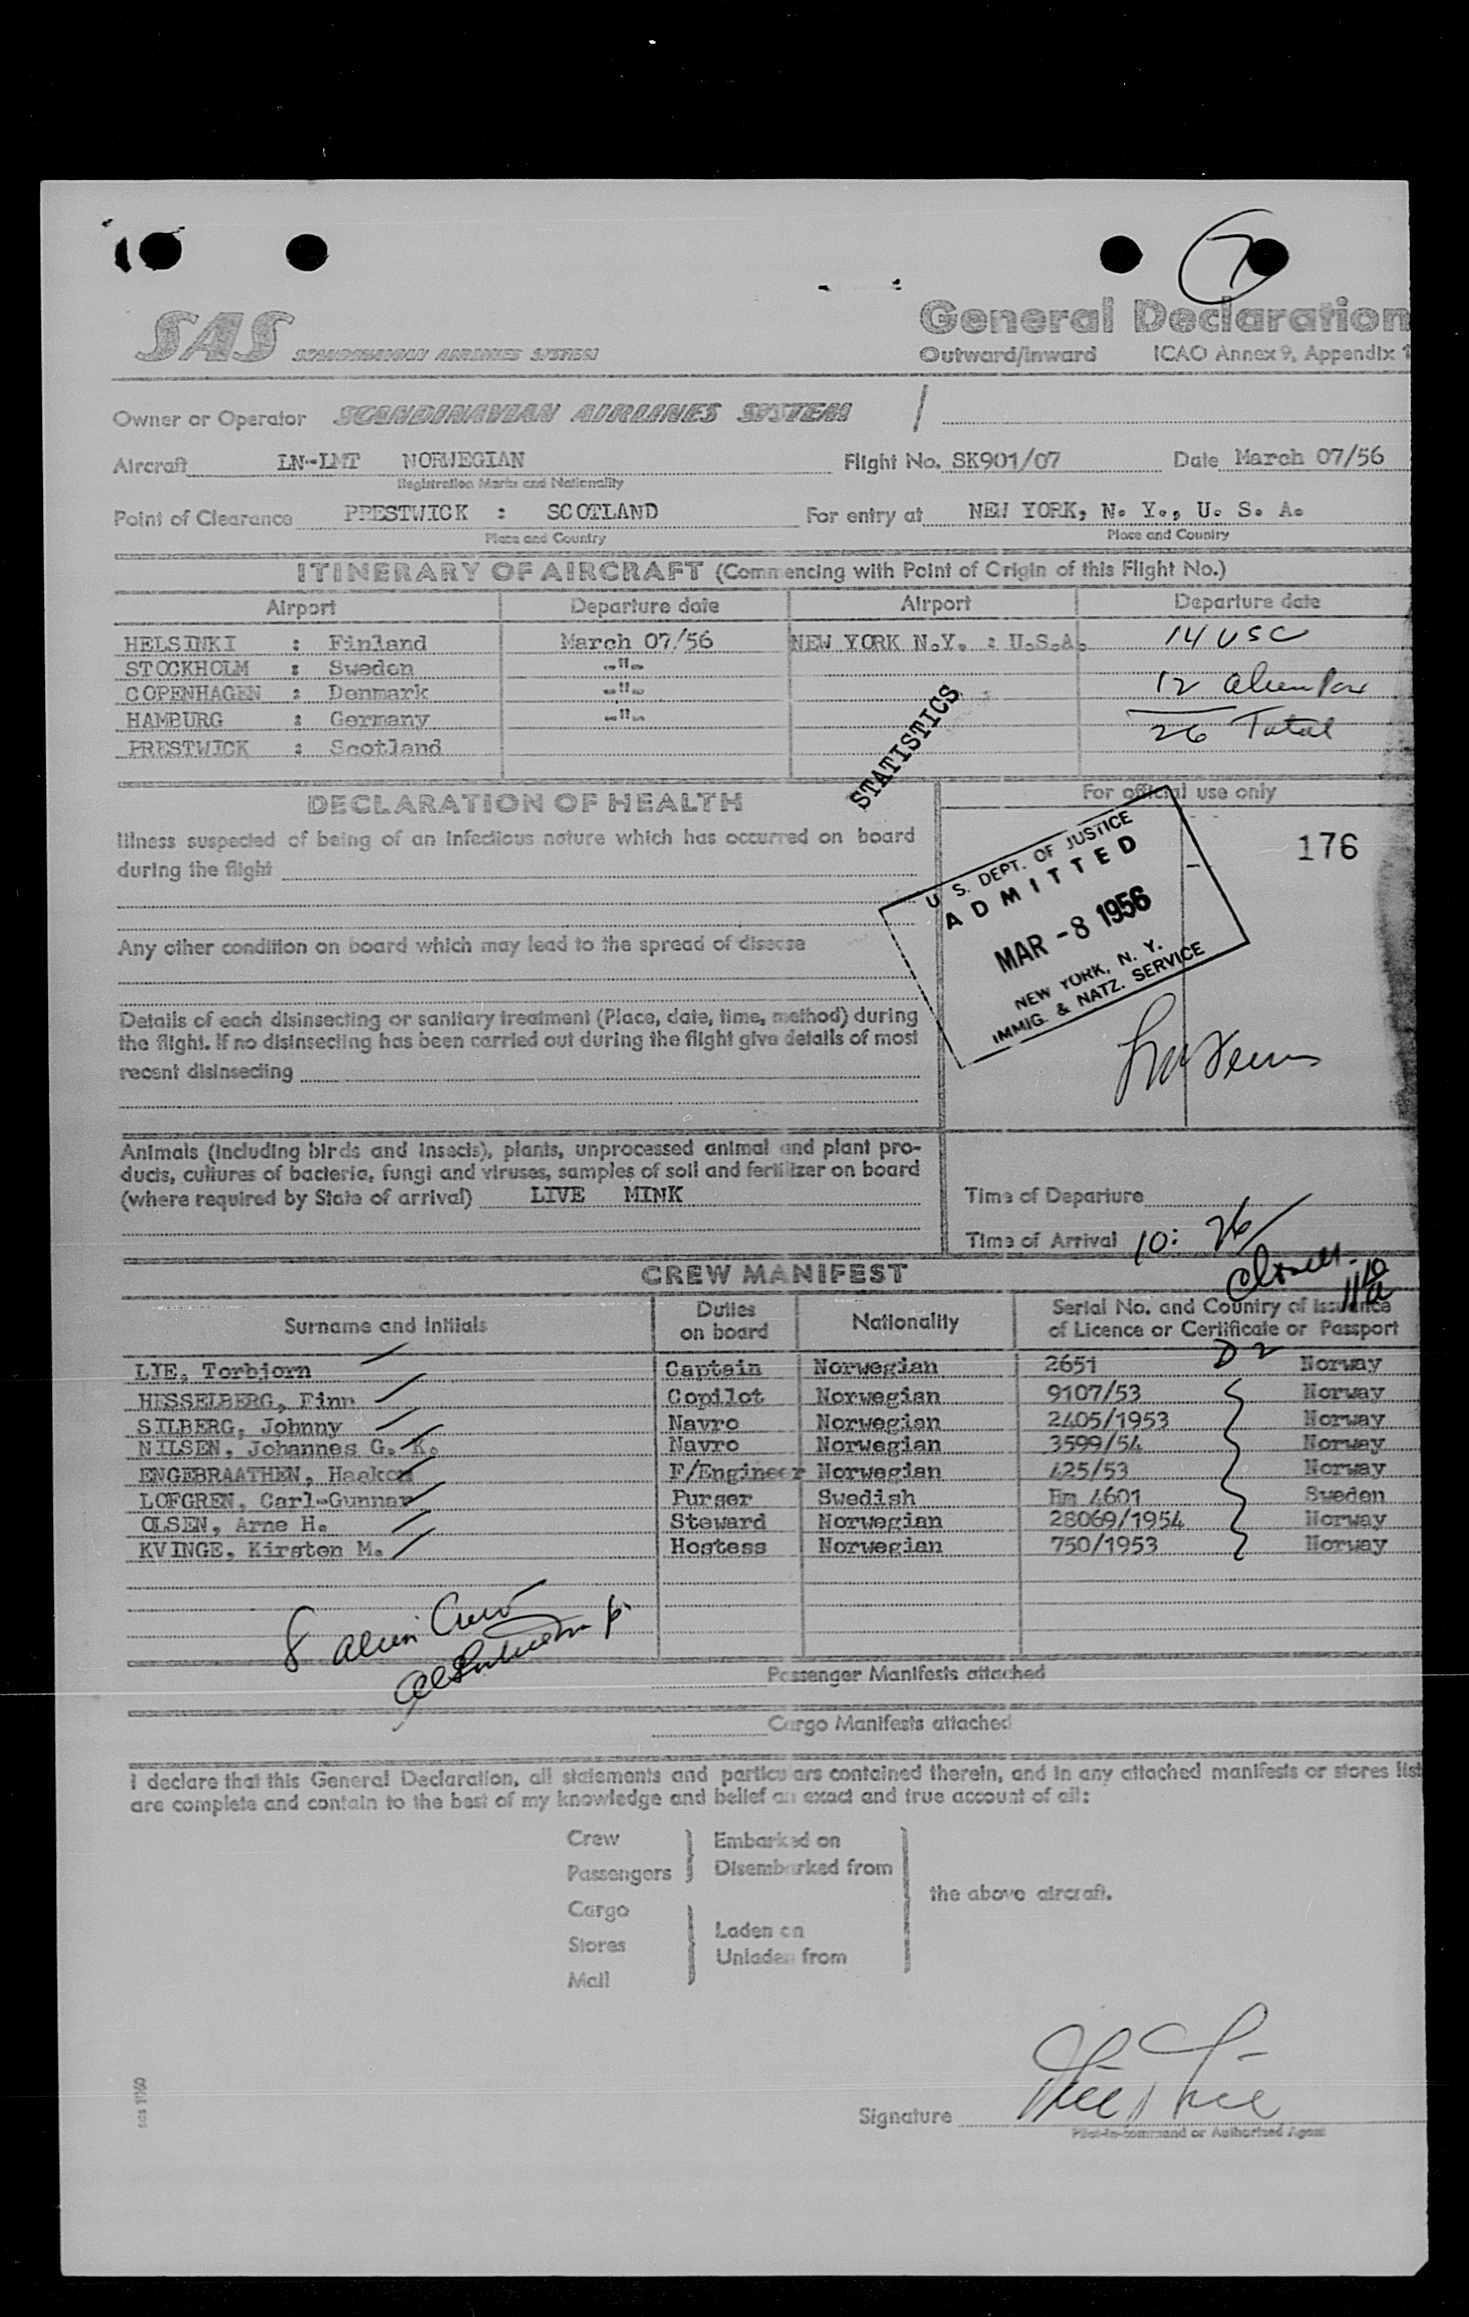 7
SAS SCANDINAVIAN AIRLINES SYSTEM
General Declaration
Outward/Inward ICAO Annex 9, Appendix 1
Owner or Operator SCANDINAVIAN AIRLINES SYSTEM
Aircraft LN-LMT NORWEGIAN Flight No. SK901/07 Date March 07/56
Registration Marks and Nationality
Point of Clearance PRESTWICK : SCOTLAND For entry at NEW YORK, N. Y., U. S. A.
Place and Country Place and Country
ITINERARY OF AIRCRAFT (Commencing with Point of Origin of this Flight No.)
Airport Departure date Airport Departure date
HELSINKI : Finland March 07/56 NEW YORK N.Y. : U.S.A. 14 USC
STOCKHOLM : Sweden -"-
COPENHAGEN : Denmark -"- 12 alien Pax
HAMBURG : Germany -"- 26 Total
PRESTWICK : Scotland
STATISTICS
DECLARATION OF HEALTH
For official use only
Illness suspected of being of an infectious nature which has occurred on board
during the flight
176
U. S. DEPT. OF JUSTICE
ADMITTED
MAR -8 1956
NEW YORK, N. Y.
IMMIG. & NATZ. SERVICE
Any other condition on board which may lead to the spread of disease
Details of each disinsecting or sanitary treatment (Place, date, time, method) during
the flight. If no disinsecting has been carried out during the flight give details of most
recent disinsecting
Animals (including birds and insects), plants, unprocessed animal and plant pro-
ducts, cultures of bacteria, fungi and viruses, samples of soil and fertilizer on board
(where required by State of arrival) LIVE MINK
Time of Departure
Time of Arrival 10: 26/
CREW MANIFEST
Surname and Initials Duties on board Nationality Serial No. and Country of Issuance of Licence or Certificate or Passport
LIE, Torbjorn Captain Norwegian 2651 D2 Norway
HESSELBERG, Finn Copilot Norwegian 9107/53 Norway
SILBERG, Johnny Navro Norwegian 2405/1953 Norway
NILSEN, Johannes G. K. Navro Norwegian 3599/54 Norway
ENGEBRAATHEN, Haakon F/Engineer Norwegian 425/53 Norway
LOFGREN, Carl-Gunnar Purser Swedish Hm 4601 Sweden
OLSEN, Arne H. Steward Norwegian 28069/1954 Norway
KVINGE, Kirsten M. Hostess Norwegian 750/1953 Norway
8 alien Crew
Passenger Manifests attached
Cargo Manifests attached
I declare that this General Declaration, all statements and particulars contained therein, and in any attached manifests or stores list
are complete and contain to the best of my knowledge and belief an exact and true account of all:
Crew
Passengers
Embarked on
Disembarked from
Cargo
Stores
Mail
Laden on
Unladen from
the above aircraft.
Signature
Pilot-in-command or Authorized Agent